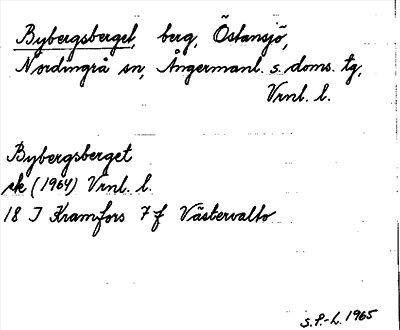 Bybergsberget, berg, Östansjö,
Nordingrå sn, Ångermanl. s. doms. tg,
Vrnl. l.
Bybergsberget
ek (1964) Vrnl. l.
18 I Kramfors 7 f Västervalto
S.P.-L. 1965